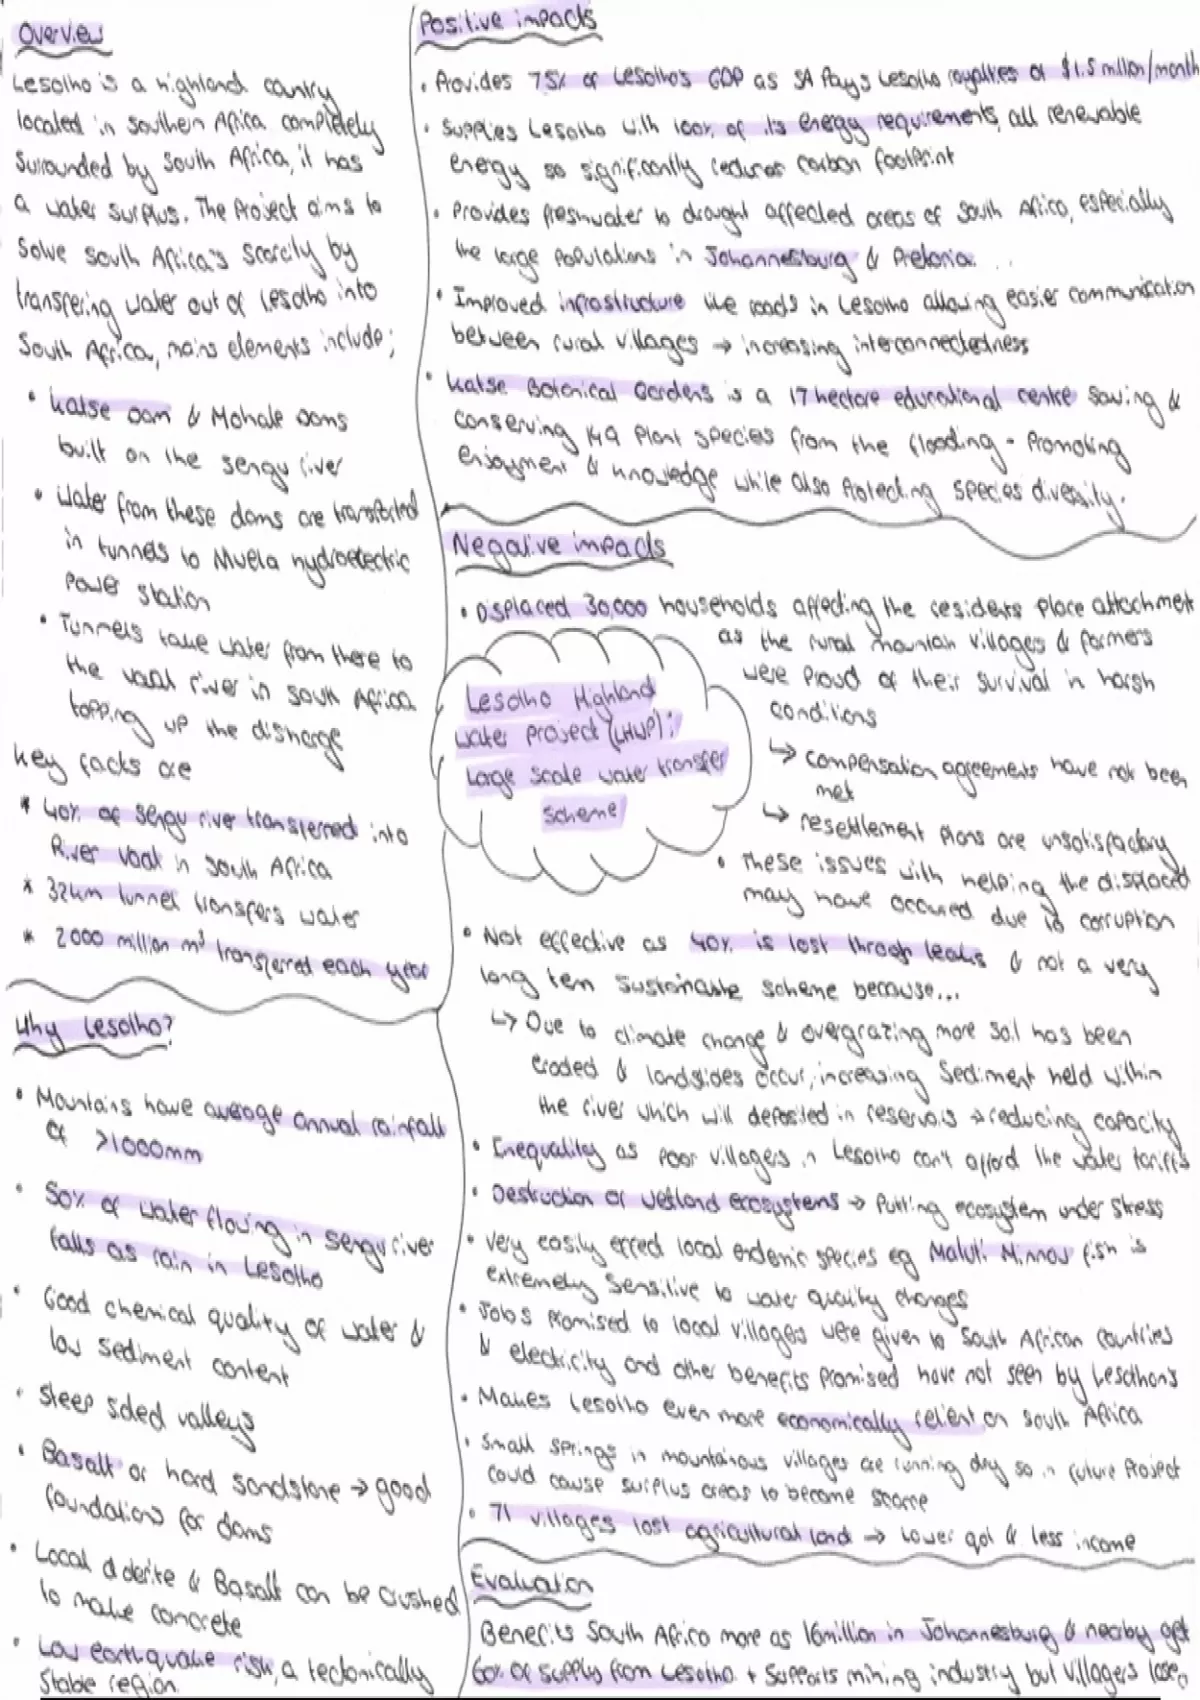 Overview
Lesotho is a highland country
located in southern Africa completely
surrounded by South Africa, it has
a water surplus. The Project aims to
solve South Africa's scarcity by
transfering water out of Lesotho into
South Africa, mains elements include;
• Katse Dam & Mohale Dams
built on the senqu river
• Water from these dams are transferred
in tunnels to Muela hydroelectric
Power station
• Tunnels take water from there to
the vaal river in South Africa
topping up the discharge
Key facts are
* 40% of senqu river transferred into
River Vaal in South Africa
* 32km tunnel transfers water
* 2000 million m³ transferred each year
Why Lesotho?
• Mountains have average annual rainfall
of >1000mm
• 50% of water flowing in senqu river
falls as rain in Lesotho
• Good chemical quality of water &
low sediment content
• Steep sided valleys
• Basalt or hard sandstone → good
foundations for dams
• Local dolerite & Basalt can be crushed
to make concrete
• Low earthquake risk, a tectonically
Stable region
Positive impacts
• Provides 75% of Lesotho's GDP as SA Pays Lesotho royalties of $1.5 million/month
• Supplies Lesotho with 100% of its energy requirements, all renewable
energy so significantly reduces carbon footprint
• Provides freshwater to drought affected areas of South Africa, especially
the large populations in Johannesburg & Pretoria...
• Improved infrastructure like roads in Lesotho allowing easier communication
between rural villages → increasing interconnectedness
• Katse Botanical Gardens is a 17 hectare educational centre saving &
conserving 149 plant species from the flooding - Promoting
enjoyment & knowledge while also protecting species diversity.
Negative impacts
• Displaced 30,000 households affecting the residents place attachment
as the rural mountain villages & farmers
were proud of their survival in harsh
conditions
↳ compensation agreements have not been
met
↳ resettlement plans are unsatisfactory
• These issues with helping the displaced
may have occured due to corruption
Lesotho Highland
Water Project (LHWP);
large scale water transfer
scheme
• Not effective as 40% is lost through leaks & not a very
long term sustainable scheme because...
↳ Due to climate change & overgrazing more soil has been
eroded & landslides occur, increasing sediment held within
the river which will deposited in reservoirs → reducing capacity
• Inequality as poor villages in Lesotho can't afford the water tariffs
• Destruction of wetland ecosystems → Putting ecosystem under stress
• Very easily effect local endemic species eg Maluti Minnow fish is
extremely sensitive to water quality changes
• Jobs promised to local villages were given to South African countries
& electricity and other benefits promised have not seen by Lesothons
• Makes Lesotho even more economically relient on South Africa
• Small springs in mountainous villages are running dry so in future Project
could cause surplus areas to become scarce
• 71 villages lost agricultural land → Lower qol & less income
Evaluation
Benefits South Africa more as 16million in Johannesburg & nearby get
60% of supply from Lesotho + supports mining industry but villagers lose.